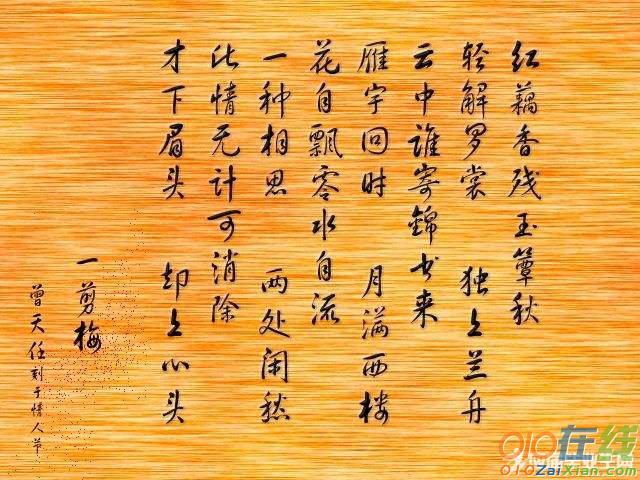 红藕香残玉簟秋
轻解罗裳 独上兰舟
云中谁寄锦书来
雁字回时 月满西楼
花自飘零水自流
一种相思 两处闲愁
此情无计可消除
才下眉头 却上心头
一剪梅
曾天任刻于情人节
010在线
010ZaiXian.com